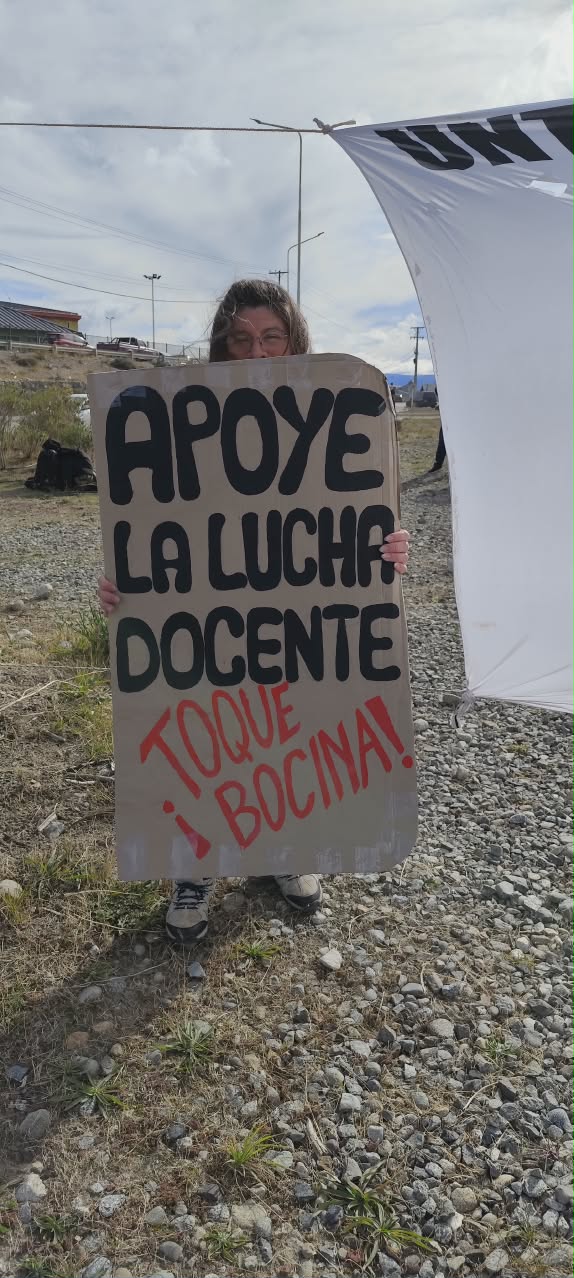 APOYE
LA LUCHA
DOCENTE
TOQUE
¡BOCINA!